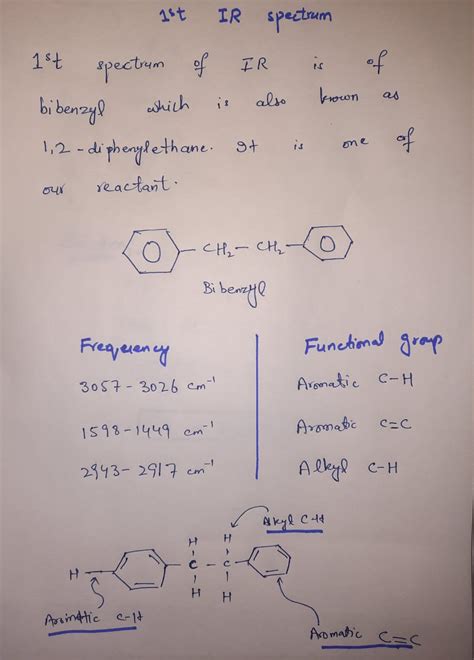 1st IR spectrum
1st spectrum of IR is of
bibenzyl which is also known as
1,2-diphenylethane. It is one of
our reactant.
CH₂ - CH₂
Bibenzyl
Frequency | Functional group
3057-3026 cm⁻¹ | Aromatic C-H
1598-1449 cm⁻¹ | Aromatic C=C
2943-2917 cm⁻¹ | Alkyl C-H
Alkyl C-H
H H
H C - C
H H
Aromatic C-H
Aromatic C=C